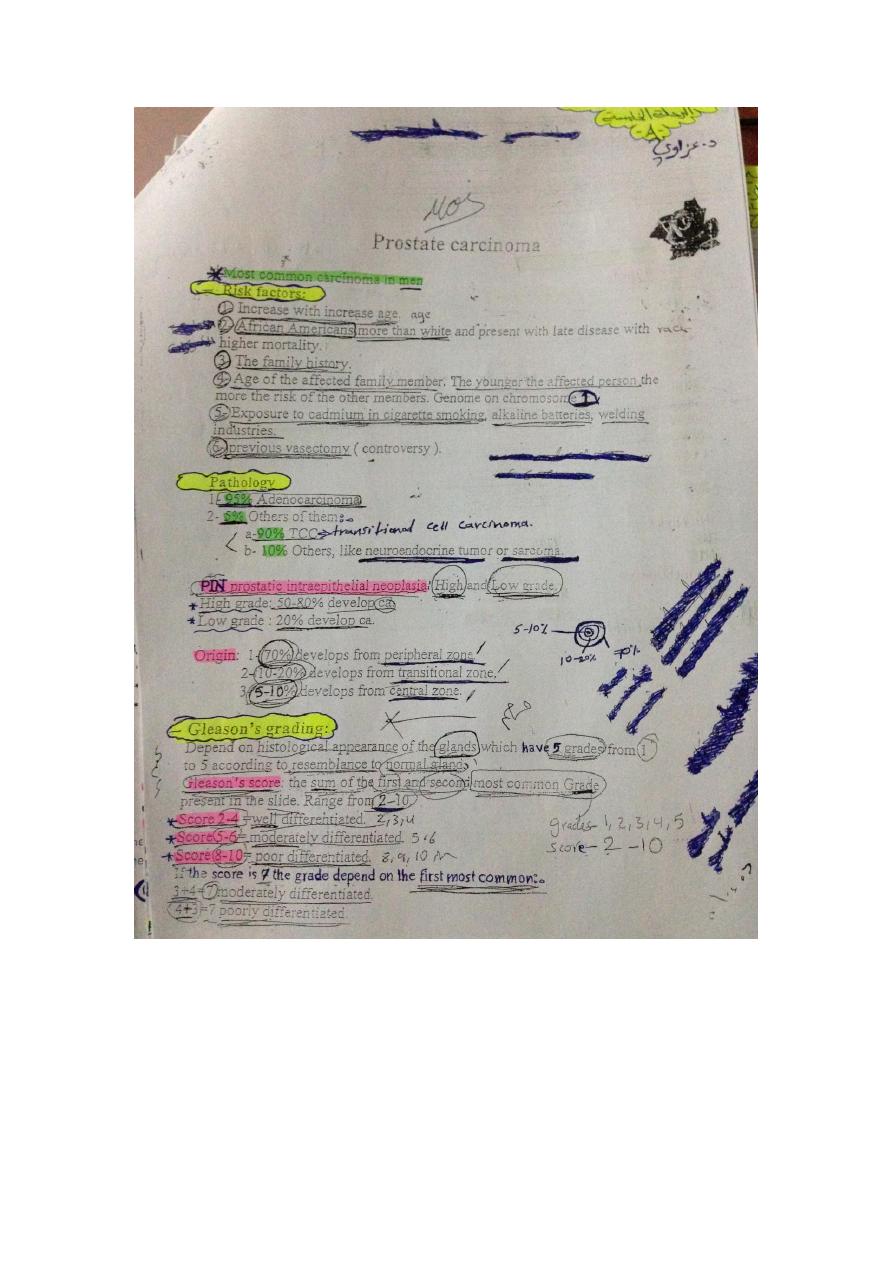 المرحلة الخامسة
-A-
د. عزاوي
Prostate carcinoma
*Most common carcinoma in men
Risk factors:
1- Increase with increase age. age
2- African Americans more than white and present with late disease with race
higher mortality.
3- The family history.
4- Age of the affected family member. The younger the affected person the
more the risk of the other members. Genome on chromosome 1
5- Exposure to cadmium in cigarette smoking, alkaline batteries, welding
industries.
6- previous vasectomy ( controversy ).
Pathology
1- 95% Adenocarcinoma
2- 5% Others of them:
a- 90% TCC → transitional cell carcinoma.
b- 10% Others, like neuroendocrine tumor or sarcoma.
PIN prostatic intraepithelial neoplasia: High and Low grade.
* High grade: 50-80% develop ca.
* Low grade : 20% develop ca.
5-10%
10-20% 70%
Origin: 1- 70% develops from peripheral zone.
2- 10-20% develops from transitional zone.
3- 5-10% develops from central zone.
Gleason's grading:
Depend on histological appearance of the glands which have 5 grades from 1
to 5 according to resemblance to normal gland.
Gleason's score: the sum of the first and second most common Grade
present in the slide. Range from 2-10
* Score 2-4 = well differentiated. 2,3,4
grades 1,2,3,4,5
* Score 5-6 = moderately differentiated. 5.6
score - 2 -10
* Score 8-10 = poor differentiated. 8,9,10
If the score is 7 the grade depend on the first most common:
3+4=7 moderately differentiated.
4+3=7 poorly differentiated.